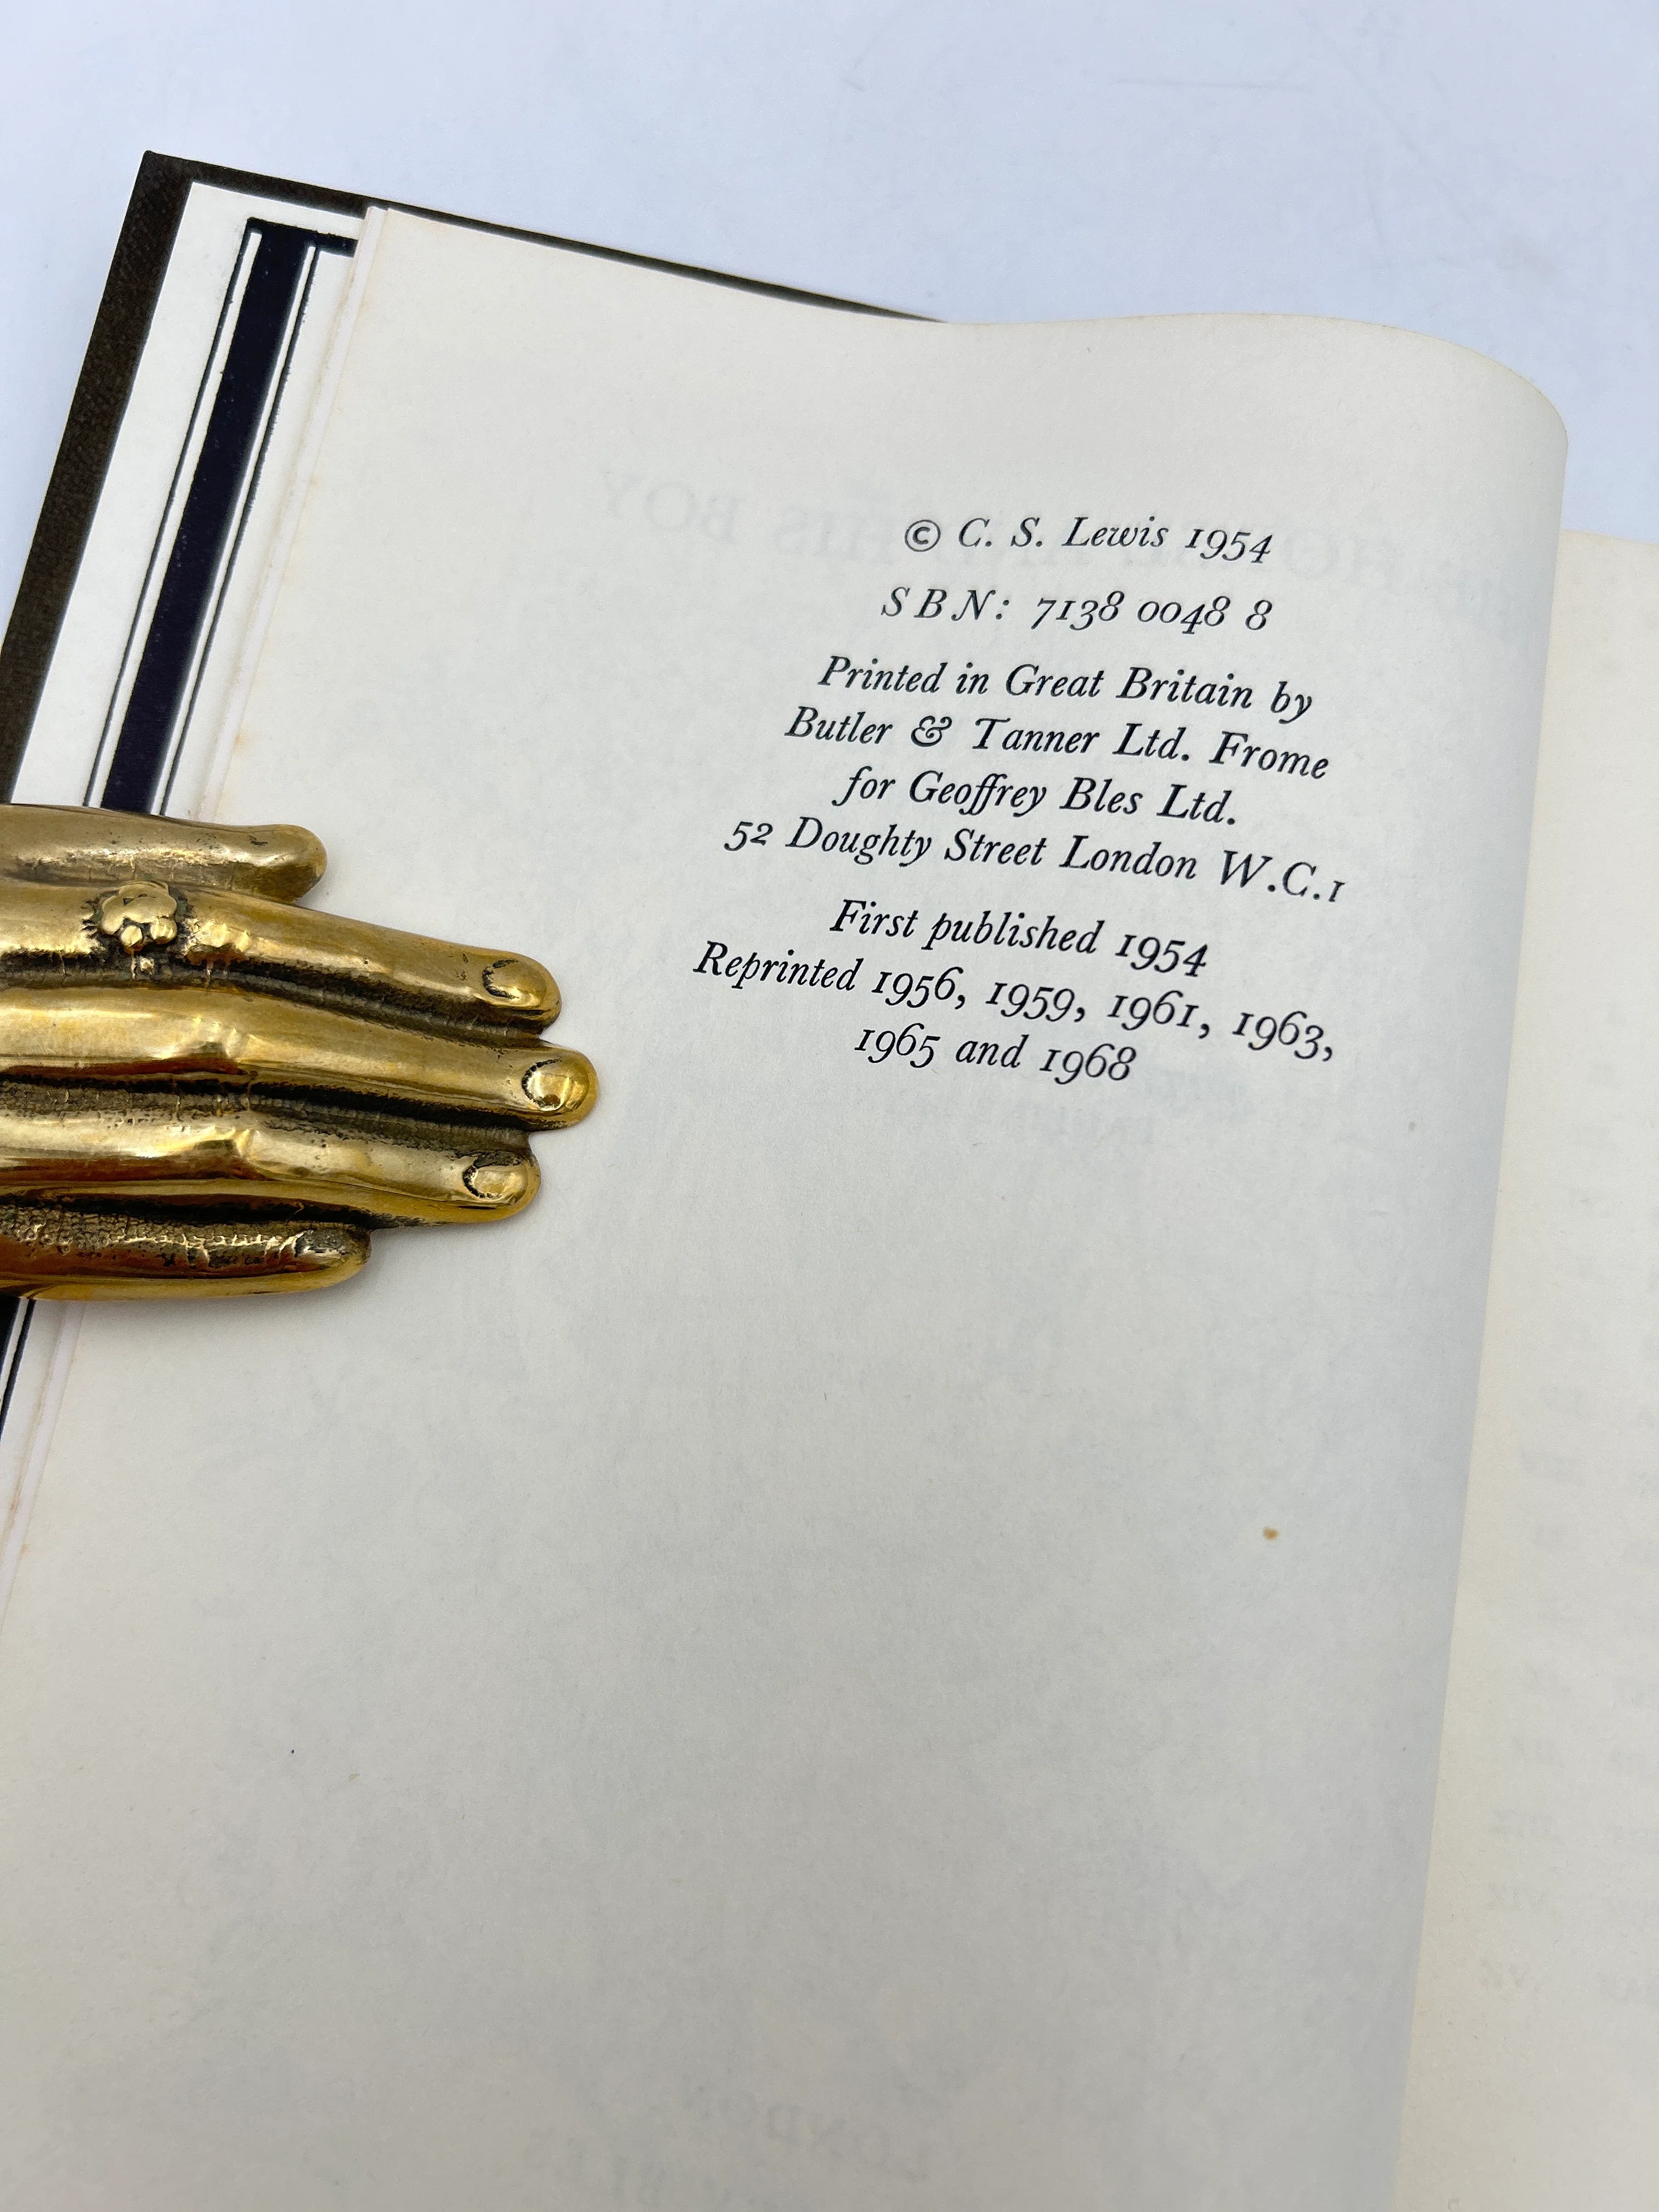 © C. S. Lewis 1954
SBN: 7138 0048 8
Printed in Great Britain by
Butler & Tanner Ltd. Frome
for Geoffrey Bles Ltd.
52 Doughty Street London W.C.1
First published 1954
Reprinted 1956, 1959, 1961, 1963,
1965 and 1968